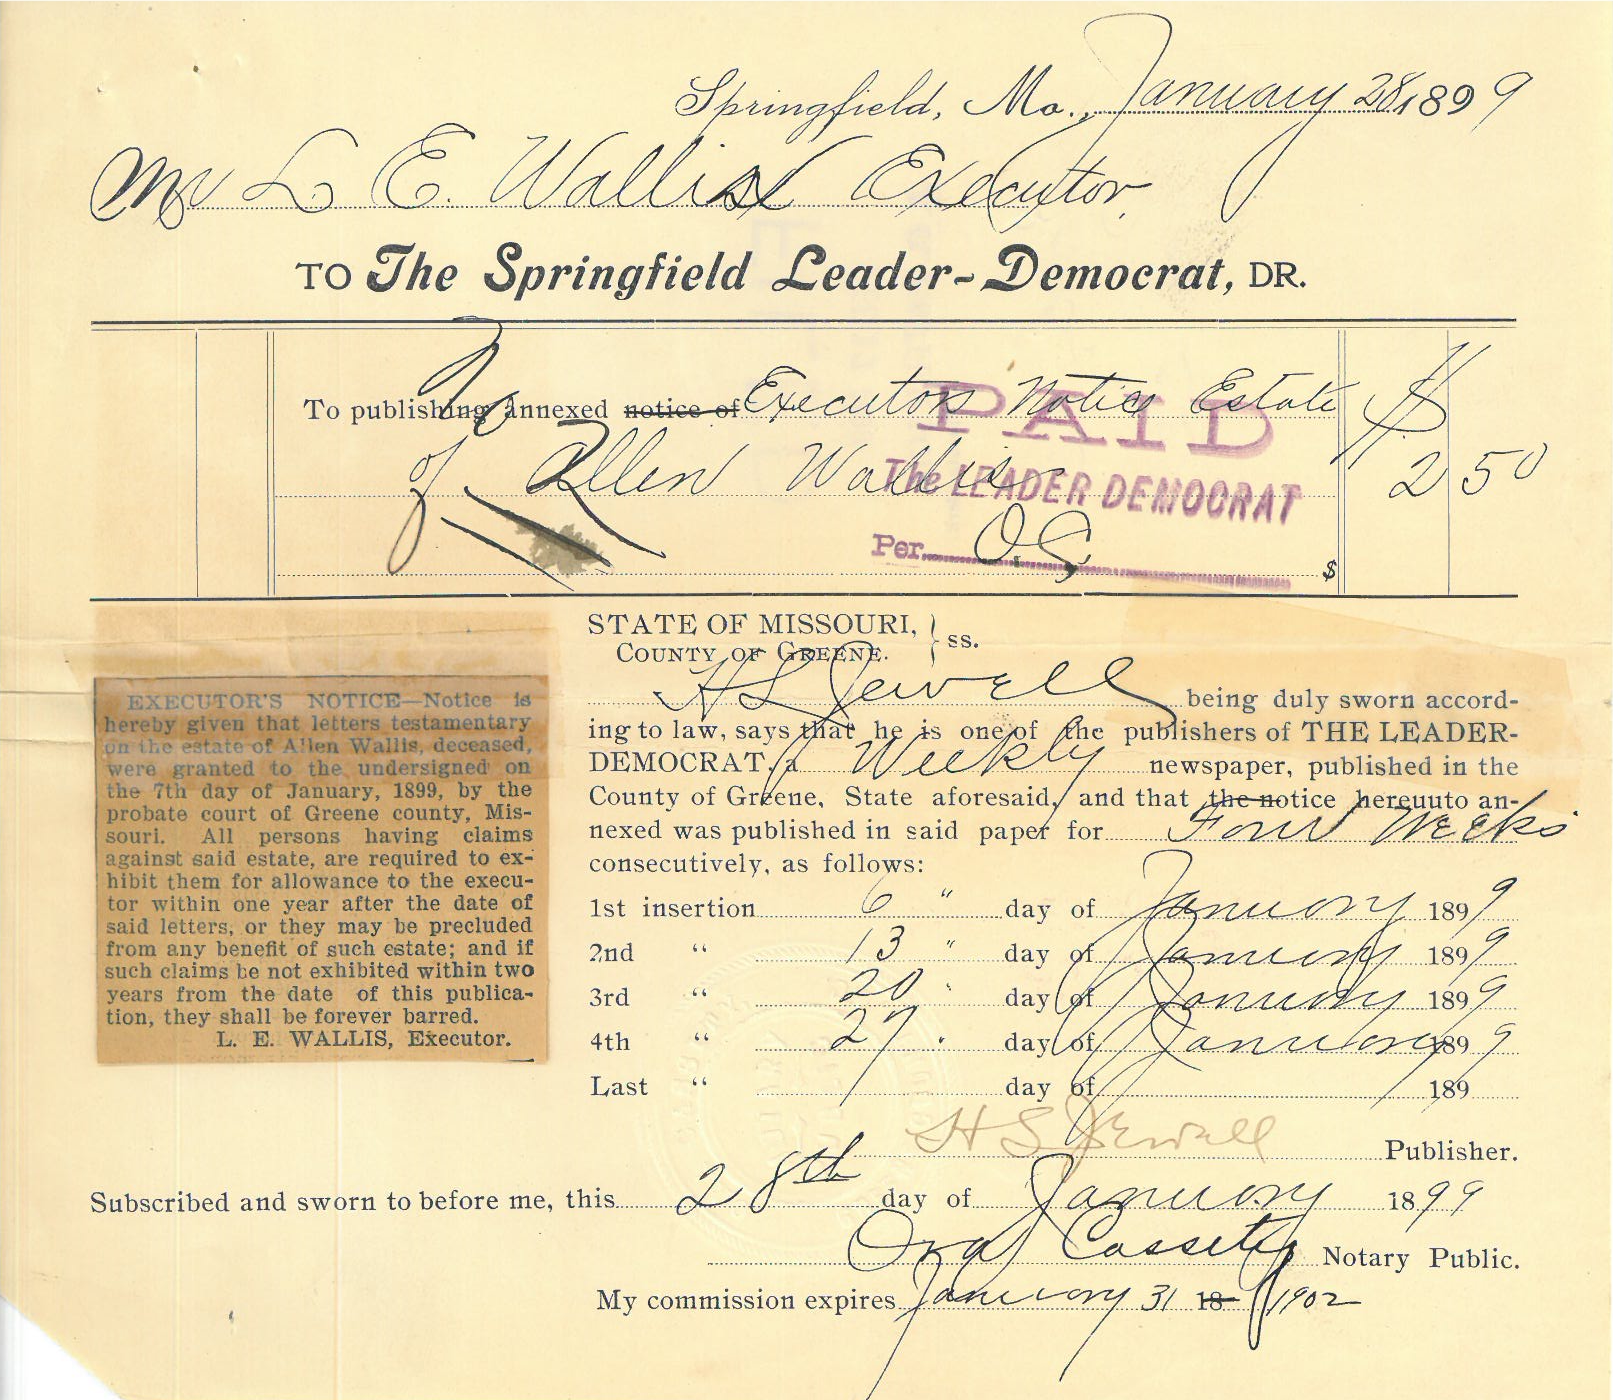 Springfield, Mo., January 28, 1899
Mr L E. Wallis Executor
TO The Springfield Leader-Democrat, DR.
To publishing annexed notice of Executors Notice Estate $
of Allen Wallis 2 50
PAID
The LEADER DEMOCRAT
Per O.C.
$
EXECUTOR'S NOTICE—Notice is
hereby given that letters testamentary
on the estate of Allen Wallis, deceased,
were granted to the undersigned on
the 7th day of January, 1899, by the
probate court of Greene county, Mis-
souri. All persons having claims
against said estate, are required to ex-
hibit them for allowance to the execu-
tor within one year after the date of
said letters, or they may be precluded
from any benefit of such estate; and if
such claims be not exhibited within two
years from the date of this publica-
tion, they shall be forever barred.
L. E. WALLIS, Executor.
STATE OF MISSOURI, } ss.
COUNTY OF GREENE.
H S Jewell being duly sworn accord-
ing to law, says that he is one of the publishers of THE LEADER-
DEMOCRAT, a Weekly newspaper, published in the
County of Greene, State aforesaid, and that the notice hereunto an-
nexed was published in said paper for Four Weeks
consecutively, as follows:
1st insertion 6 " day of January 1899
2nd " 13 " day of January 1899
3rd " 20 " day of January 1899
4th " 27 " day of January 1899
Last " day of 189
H S Jewell Publisher.
Subscribed and sworn to before me, this 28th day of January 1899
Notary Public.
My commission expires January 31 18 1902